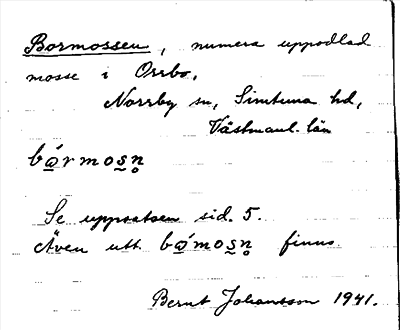 Bormossen, numera uppodlad
mosse i Orrbo,
Norrby sn, Simtuna hd,
Västmanl. län
bɷ́rmosn̥
Se uppsatsen sid. 5.
Även utt. bɷ́mosn̥ finns.
Bernt Johansson 1941.